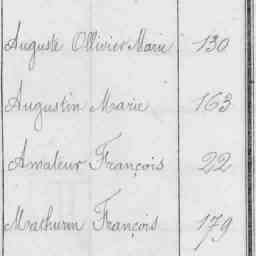 Auguste Ollivier Marie 130
Augustin Marie 163
Amateur François 22
Mathurin François 179